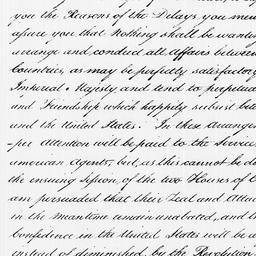 you the Reasons of the Delays, you men
assure you that Nothing shall be wantin
arrange and conduct all Affairs between
Countries, as may be perfectly satisfactory
Imperial Majesty and tend to perpetua
and Friendship which happily subsist bet
and the United States. In these arrangem
-per attention will be paid to the Services
american Agents, but, as this cannot be do
the ensuing Session of the two Houses of C
am persuaded that their Zeal and Attac
in the meantime remain unabated, and t
Confidence in the United States will be
instead of diminished, by the Revolution